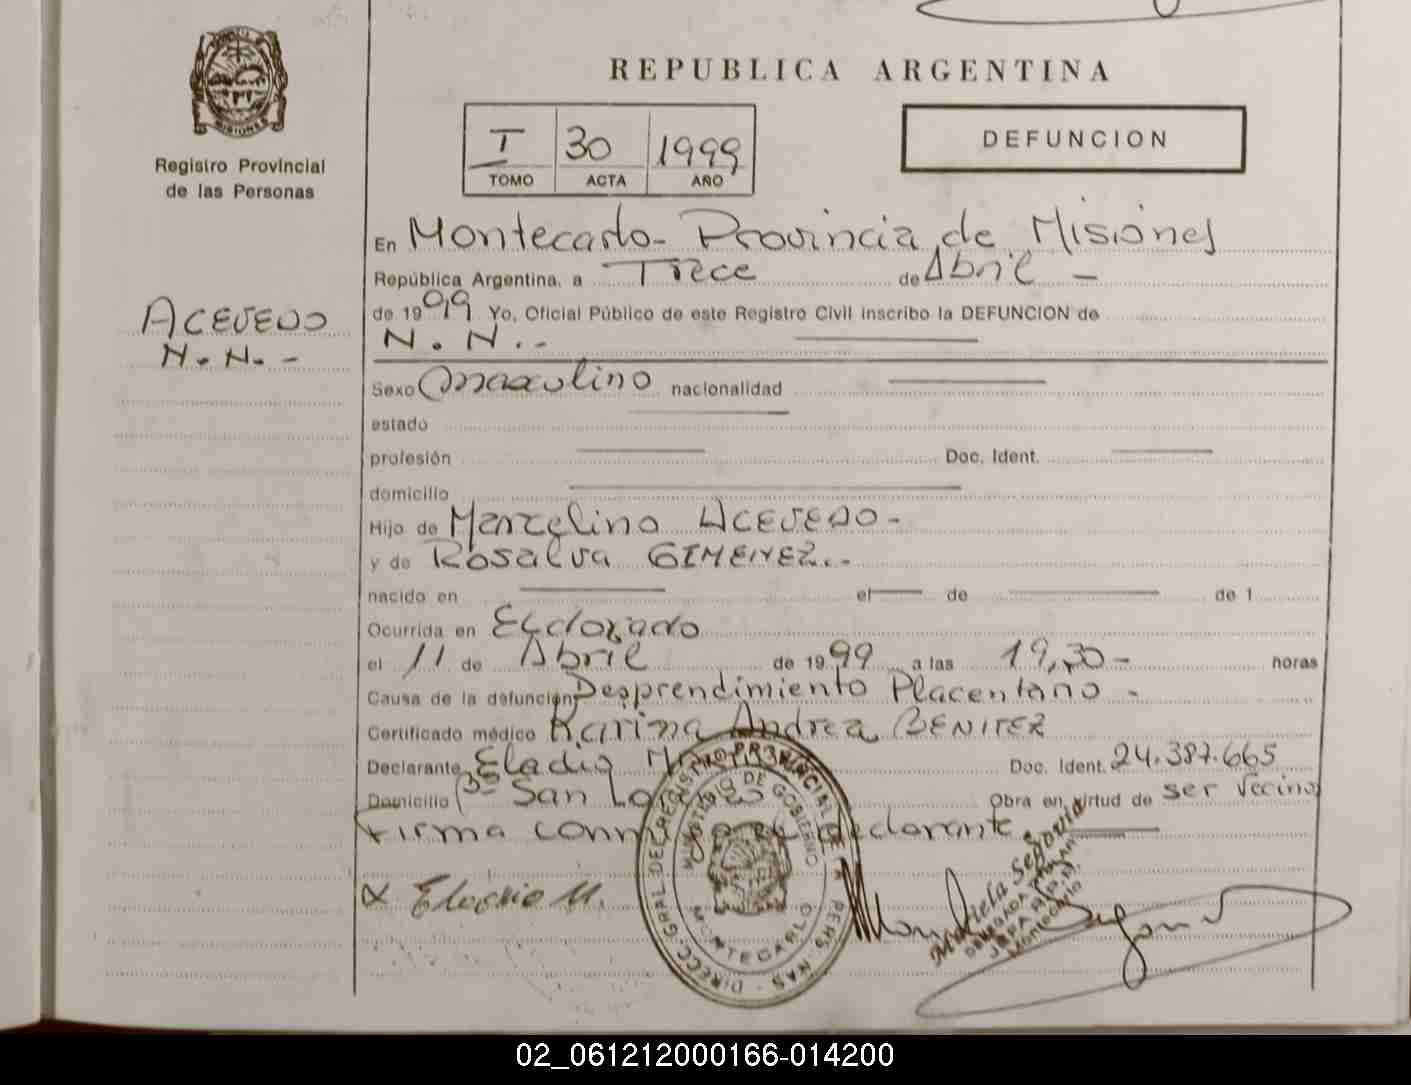 REPUBLICA ARGENTINA
MISIONES
Registro Provincial
de las Personas
T 30 1999
TOMO ACTA AÑO
DEFUNCION
ACEVEDO
N. N. -
En Montecarlo - Provincia de Misiones
República Argentina, a Trece de Abril -
de 1999 Yo, Oficial Público de este Registro Civil inscribo la DEFUNCION de
N. N. -
Sexo masculino nacionalidad
estado
profesión Doc. Ident.
domicilio
Hijo de Marcelino ACEVEDO -
y de Rosalva GIMENEZ. -
nacido en el de de 1
Ocurrida en Eldorado
el 11 de Abril de 1999 a las 19,30 - horas
Causa de la defunción Desprendimiento Placentario -
Certificado médico Karina Andrea BENITEZ
Declarante Eladio Doc. Ident. 24.387.665
Domicilio San Obra en virtud de ser Vecino
Firma conmigo el declarante
Eladio M.
DIRECC. GRAL. DEL REGISTRO PROVINCIAL DE LAS PERSONAS
MINISTERIO DE GOBIERNO
MONTECARLO
Mariela Segovia
DELEGADA
Montecarlo
02_061212000166-014200